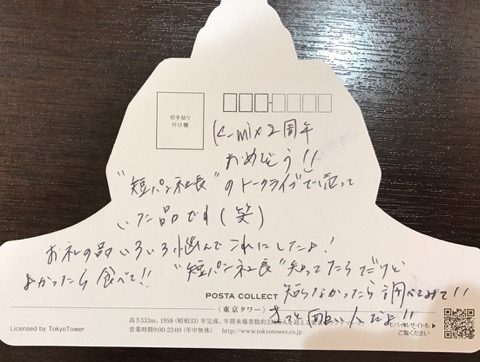 切手貼り
付け欄
K-mix2周年
おめでとう!!
"短パン社長"のトークライブで売って
いた品です(笑)
お礼の品いろいろ悩んでこれにしたよ!
よかったら食べて!! "短パン社長"知ってたらだけど
POSTA COLLECT
知らなかったら調べてみて!!
〈東京タワー〉
きっと面白い人だよ!!
高さ333m。1958(昭和33)年完成。年間来場者数約3
営業時間9:00-22:00(年中無休) http://www.tokyotower.co.jp
Licensed by TokyoTower
モバイルサイトも
ご覧ください